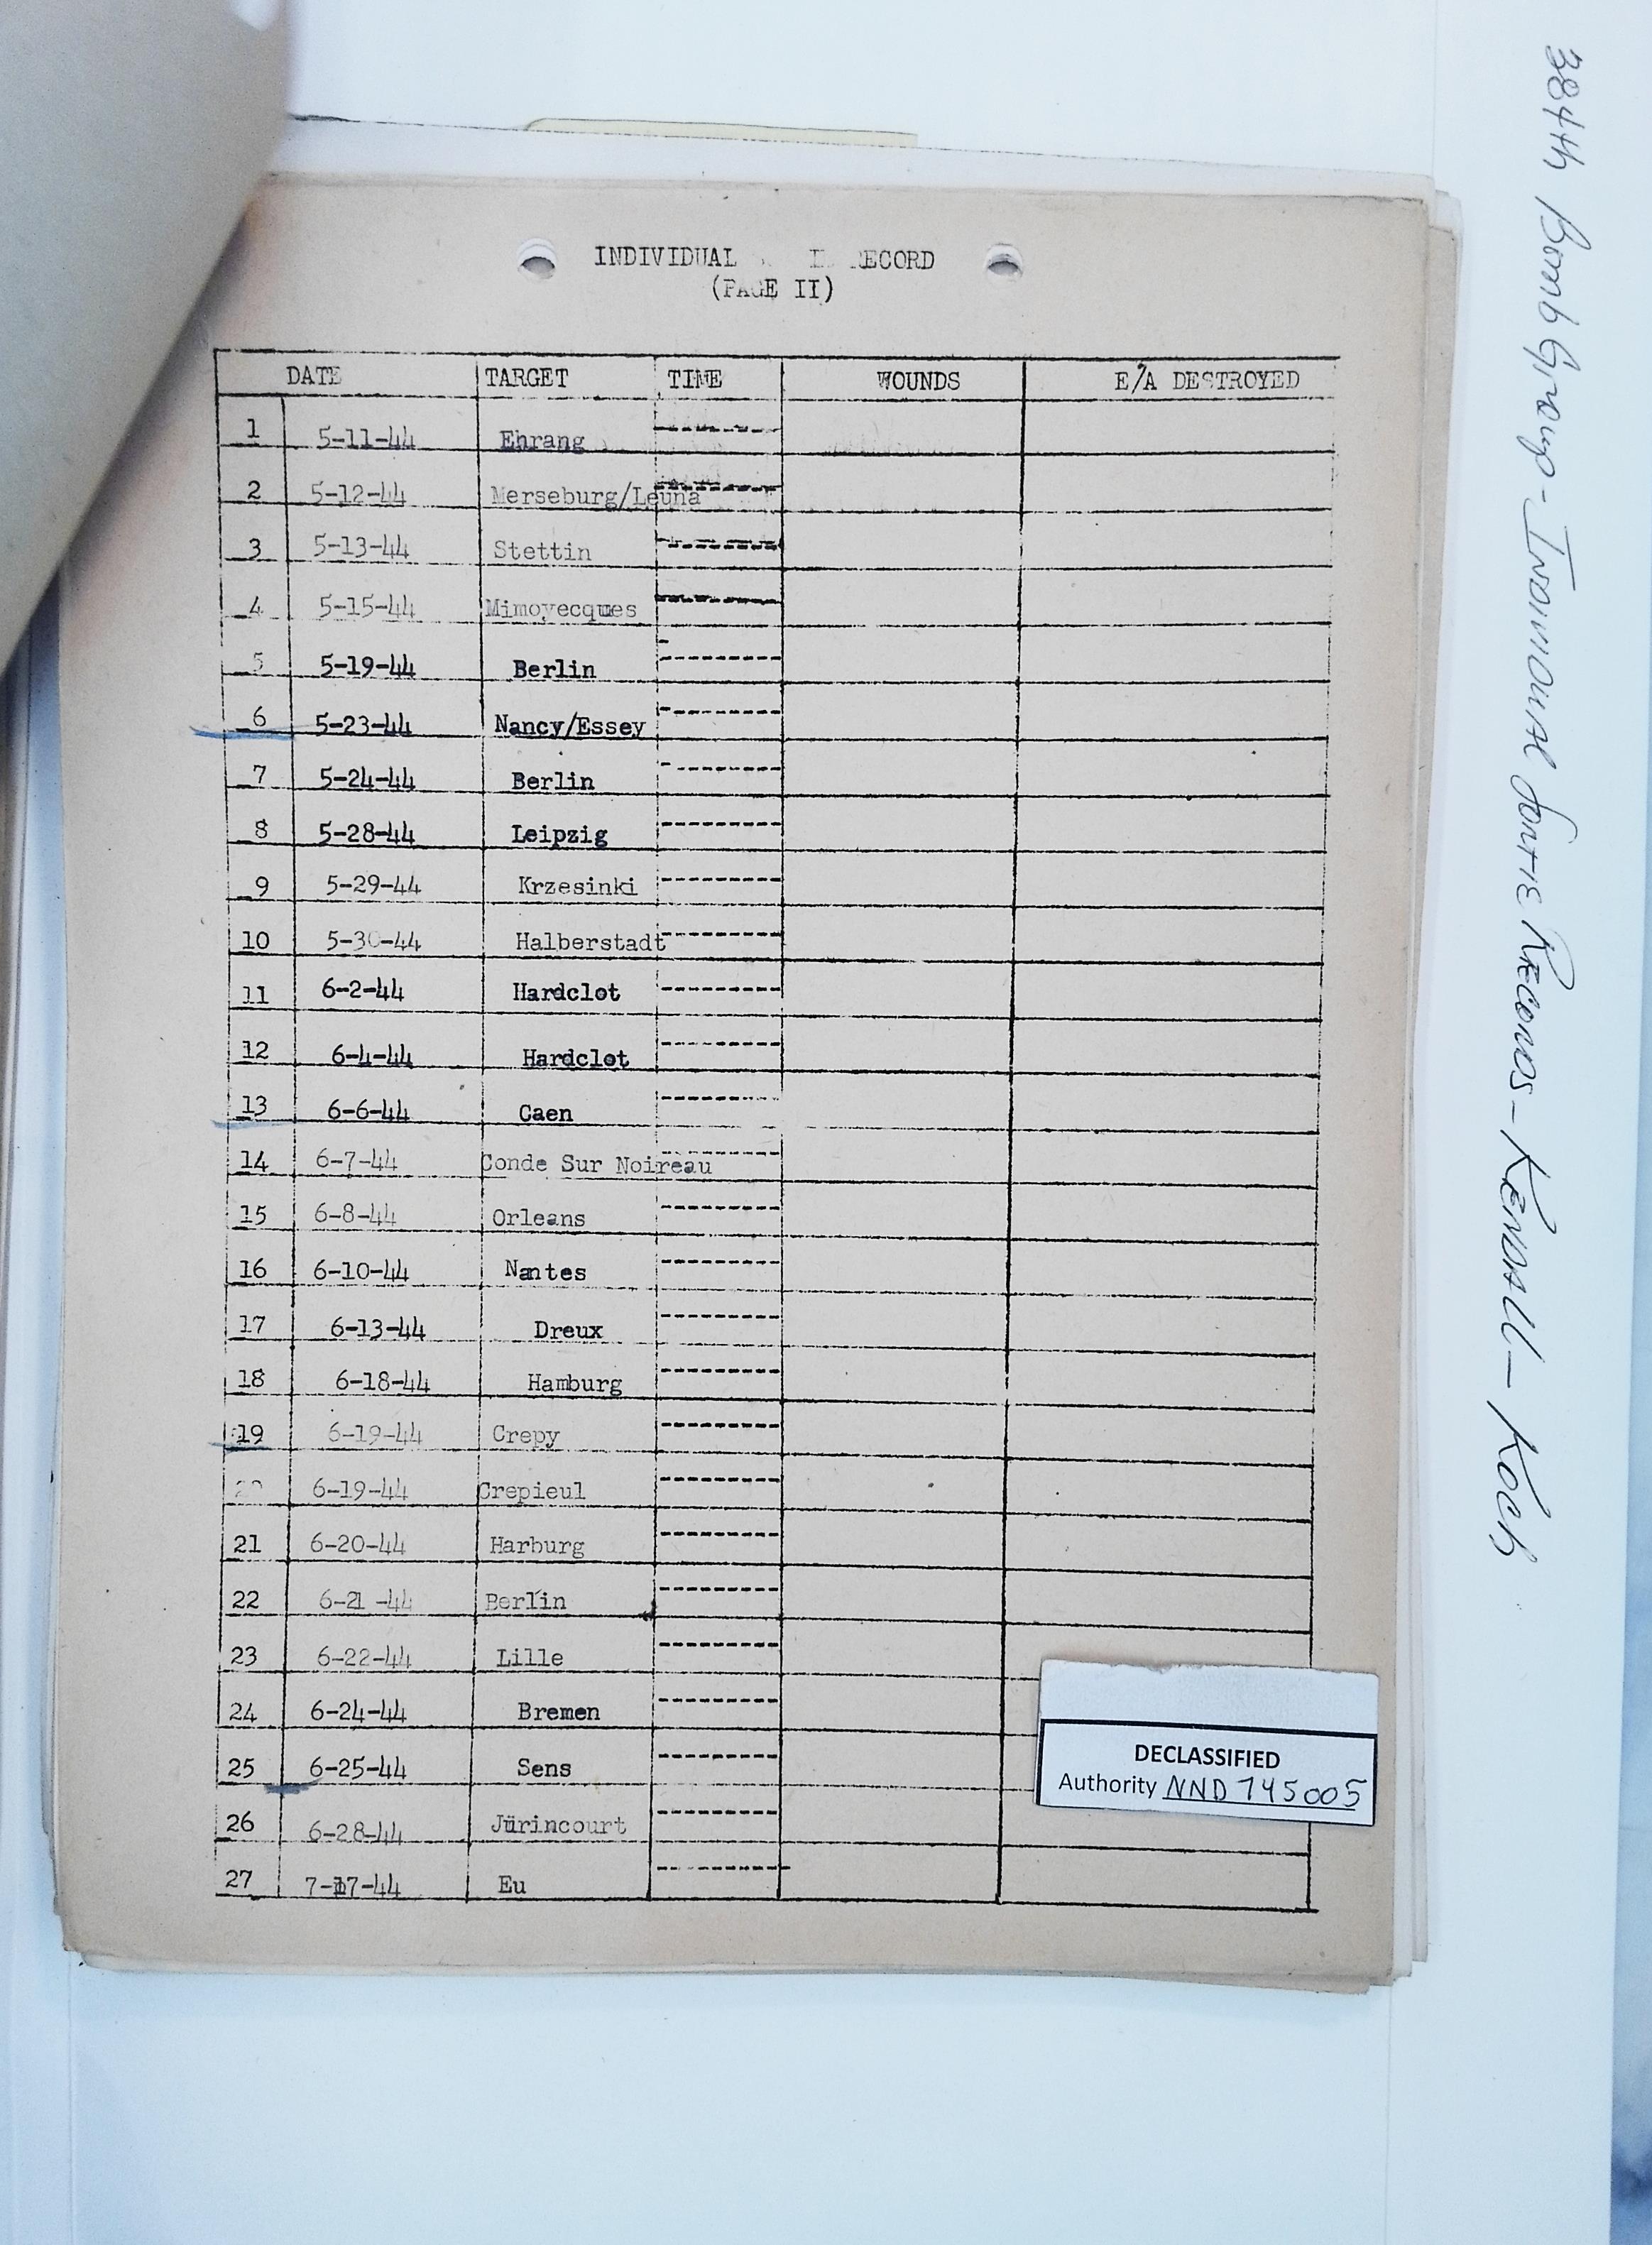 INDIVIDUAL RECORD
(PAGE II)
DATE TARGET TIME WOUNDS E/A DESTROYED
1 5-11-44 Ehrang
2 5-12-44 Merseburg/Leuna
3 5-13-44 Stettin
4 5-15-44 Mimoyecques
5 5-19-44 Berlin
6 5-23-44 Nancy/Essey
7 5-24-44 Berlin
8 5-28-44 Leipzig
9 5-29-44 Krzesinki
10 5-30-44 Halberstadt
11 6-2-44 Hardclot
12 6-4-44 Hardclot
13 6-6-44 Caen
14 6-7-44 Conde Sur Noireau
15 6-8-44 Orleans
16 6-10-44 Nantes
17 6-13-44 Dreux
18 6-18-44 Hamburg
19 6-19-44 Crepy
20 6-19-44 Crepieul
21 6-20-44 Harburg
22 6-21-44 Berlin
23 6-22-44 Lille
24 6-24-44 Bremen
25 6-25-44 Sens
26 6-28-44 Jürincourt
27 7-17-44 Eu
DECLASSIFIED
Authority NND 745005
384th Bomb Group - Individual Sortie Records - Kendall - Koch